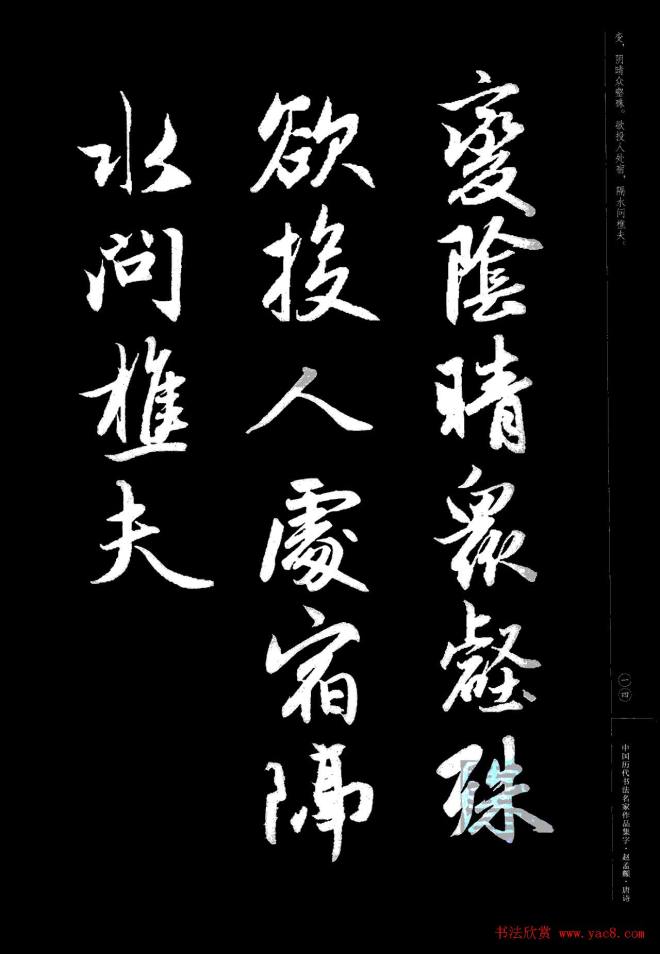 變陰晴眾壑殊
欲投人處宿隔
水問樵夫
变，阴晴众壑殊。欲投人处宿，隔水问樵夫。
一四
中国历代书法名家作品集字·赵孟頫·唐诗
书法欣赏 www.yac8.com